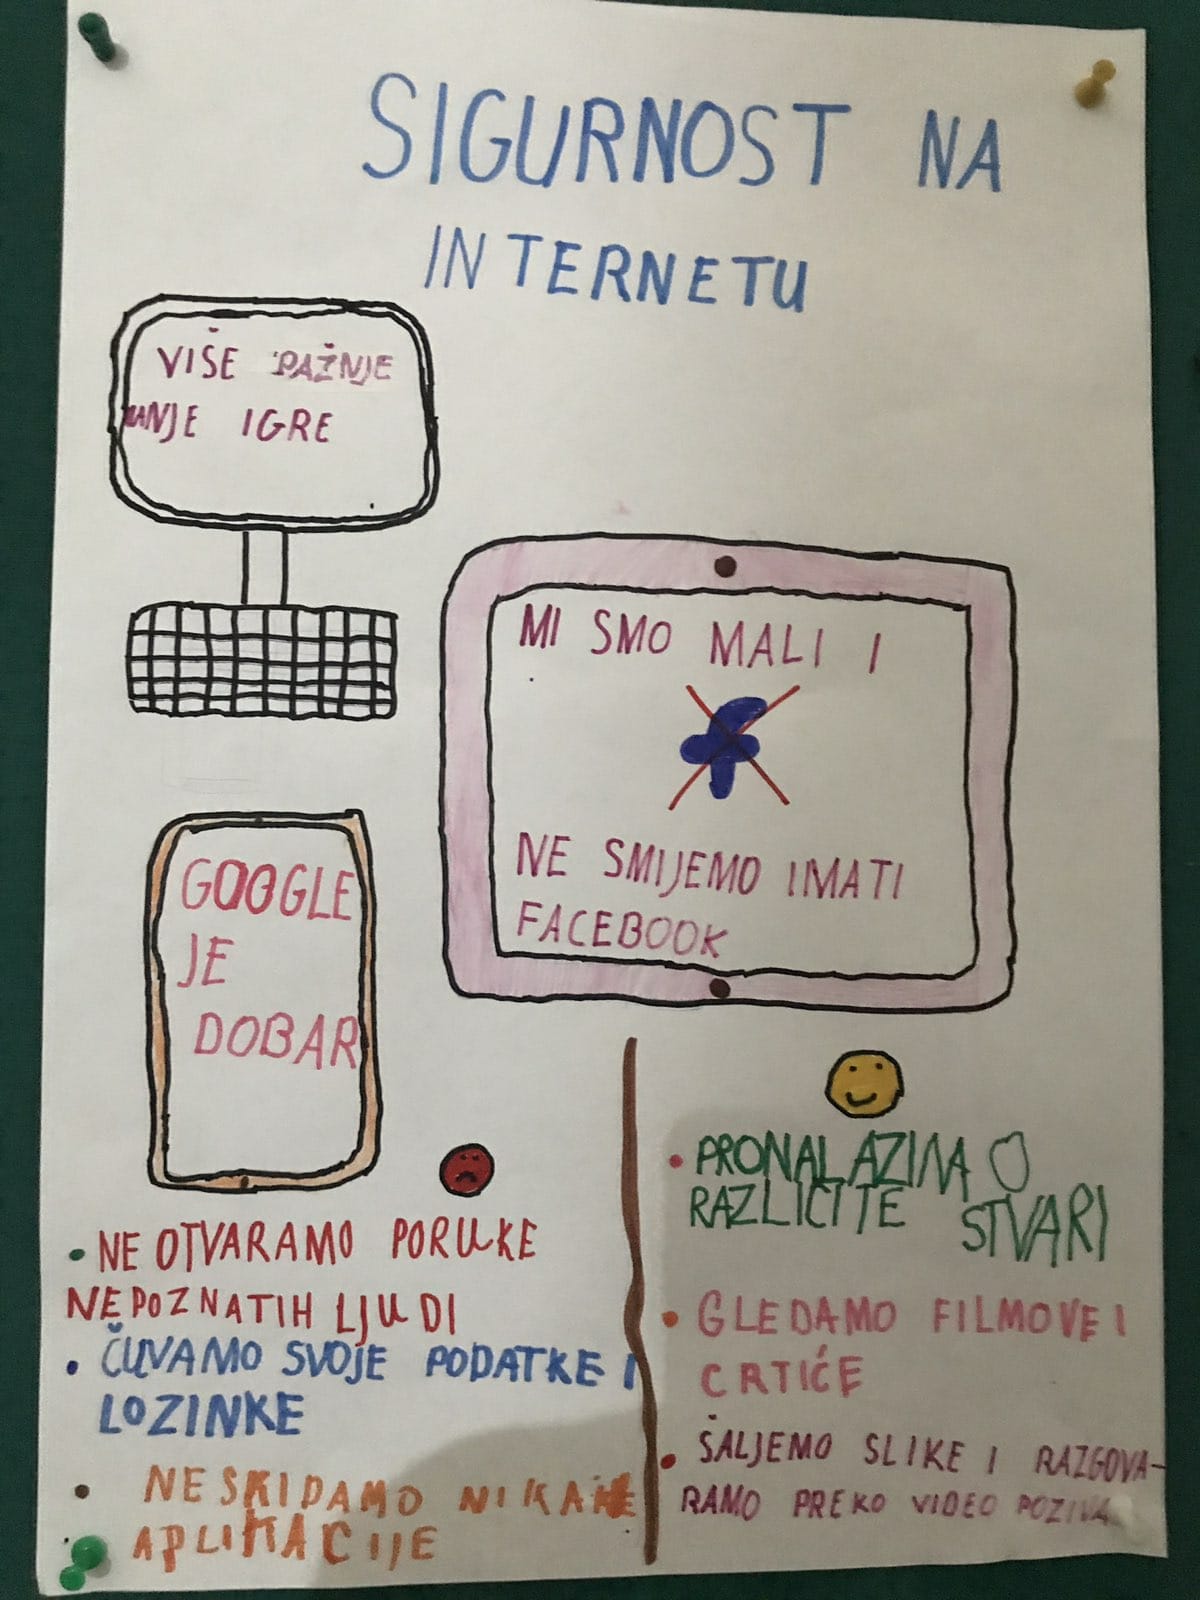 SIGURNOST NA
INTERNETU
VIŠE PAŽNJE
MANJE IGRE
MI SMO MALI I
NE SMIJEMO IMATI
FACEBOOK
GOOGLE
JE
DOBAR
• NE OTVARAMO PORUKE
NEPOZNATIH LJUDI
• ČUVAMO SVOJE PODATKE I
LOZINKE
• NE SKIDAMO NIKAKE
APLIKACIJE
• PRONALAZIMO
RAZLIČITE STVARI
• GLEDAMO FILMOVE I
CRTIĆE
• ŠALJEMO SLIKE I RAZGOVA-
RAMO PREKO VIDEO POZIVA